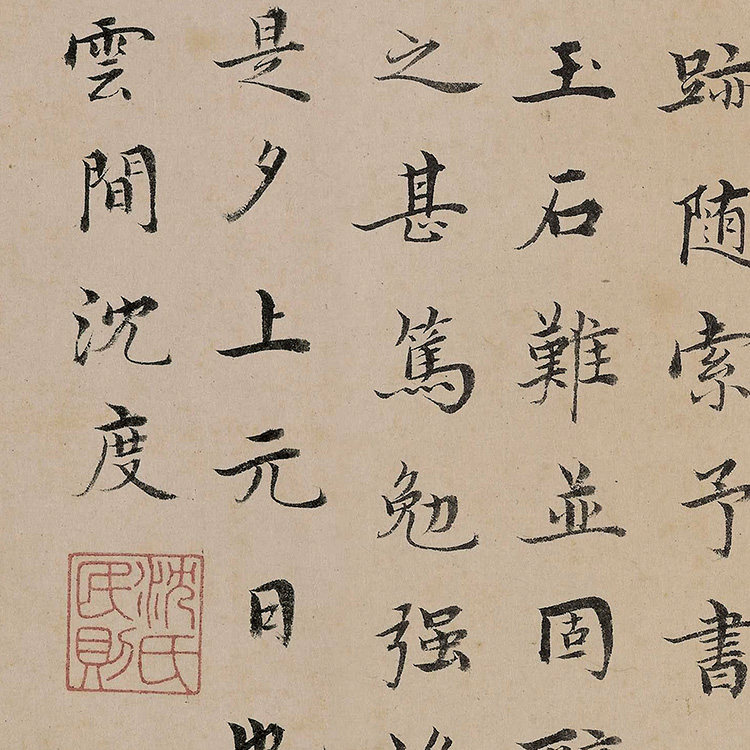 跡随索予書
玉石難並固
之甚篤勉强
是夕上元日也
雲間沈度
沈氏民則